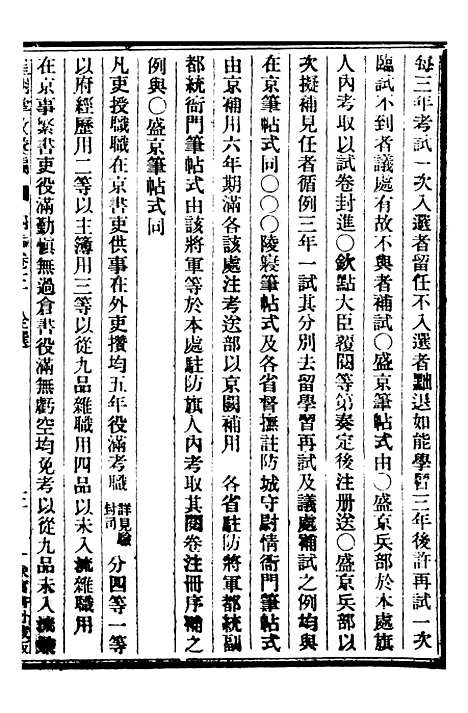 每三年考試一次入選者留任不入選者黜退如能學習三年後許再試一次
臨試不到者議處有故不與者補試〇盛京筆帖式由〇盛京兵部於本處旗
人內考取以試卷封進〇欽點大臣覆閱等第奏定後注册送〇盛京兵部以
次擬補見任者循例三年一試其分別去留學習再試及議處補試之例均與
在京筆帖式同〇〇〇陵寢筆帖式及各省督撫註防城守尉情衙門筆帖式
由京補用六年期滿各該處注考送部以京闕補用 各省駐防將軍都統副
都統衙門筆帖式由該將軍等於本處駐防旗人內考取其閱卷注冊序補之
例與〇盛京筆帖式同
凡吏授職職在京書吏供事在外吏攢均五年役滿考職詳見驗封司分四等一等
以府經歷用二等以主簿用三等以從九品雜職用四品以未入流雜職用
在京事繁書吏役滿勤慎無過倉書役滿無虧空均免考以從九品未入流